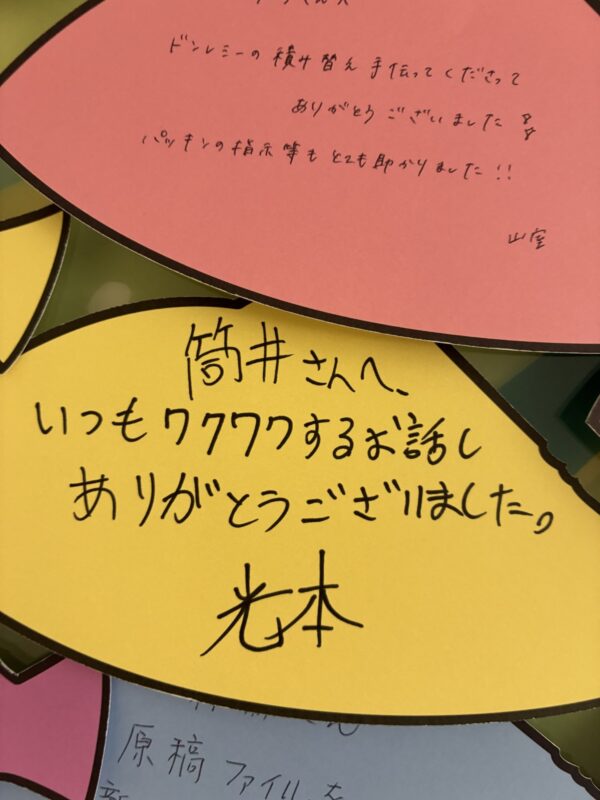 ドンレミーの積み替え手伝ってくださって
ありがとうございました!!
パッキンの指示等もとても助かりました!!
山室
筒井さんへ、
いつもワクワクするお話し
ありがとうございました。
光本
原稿ファイルを